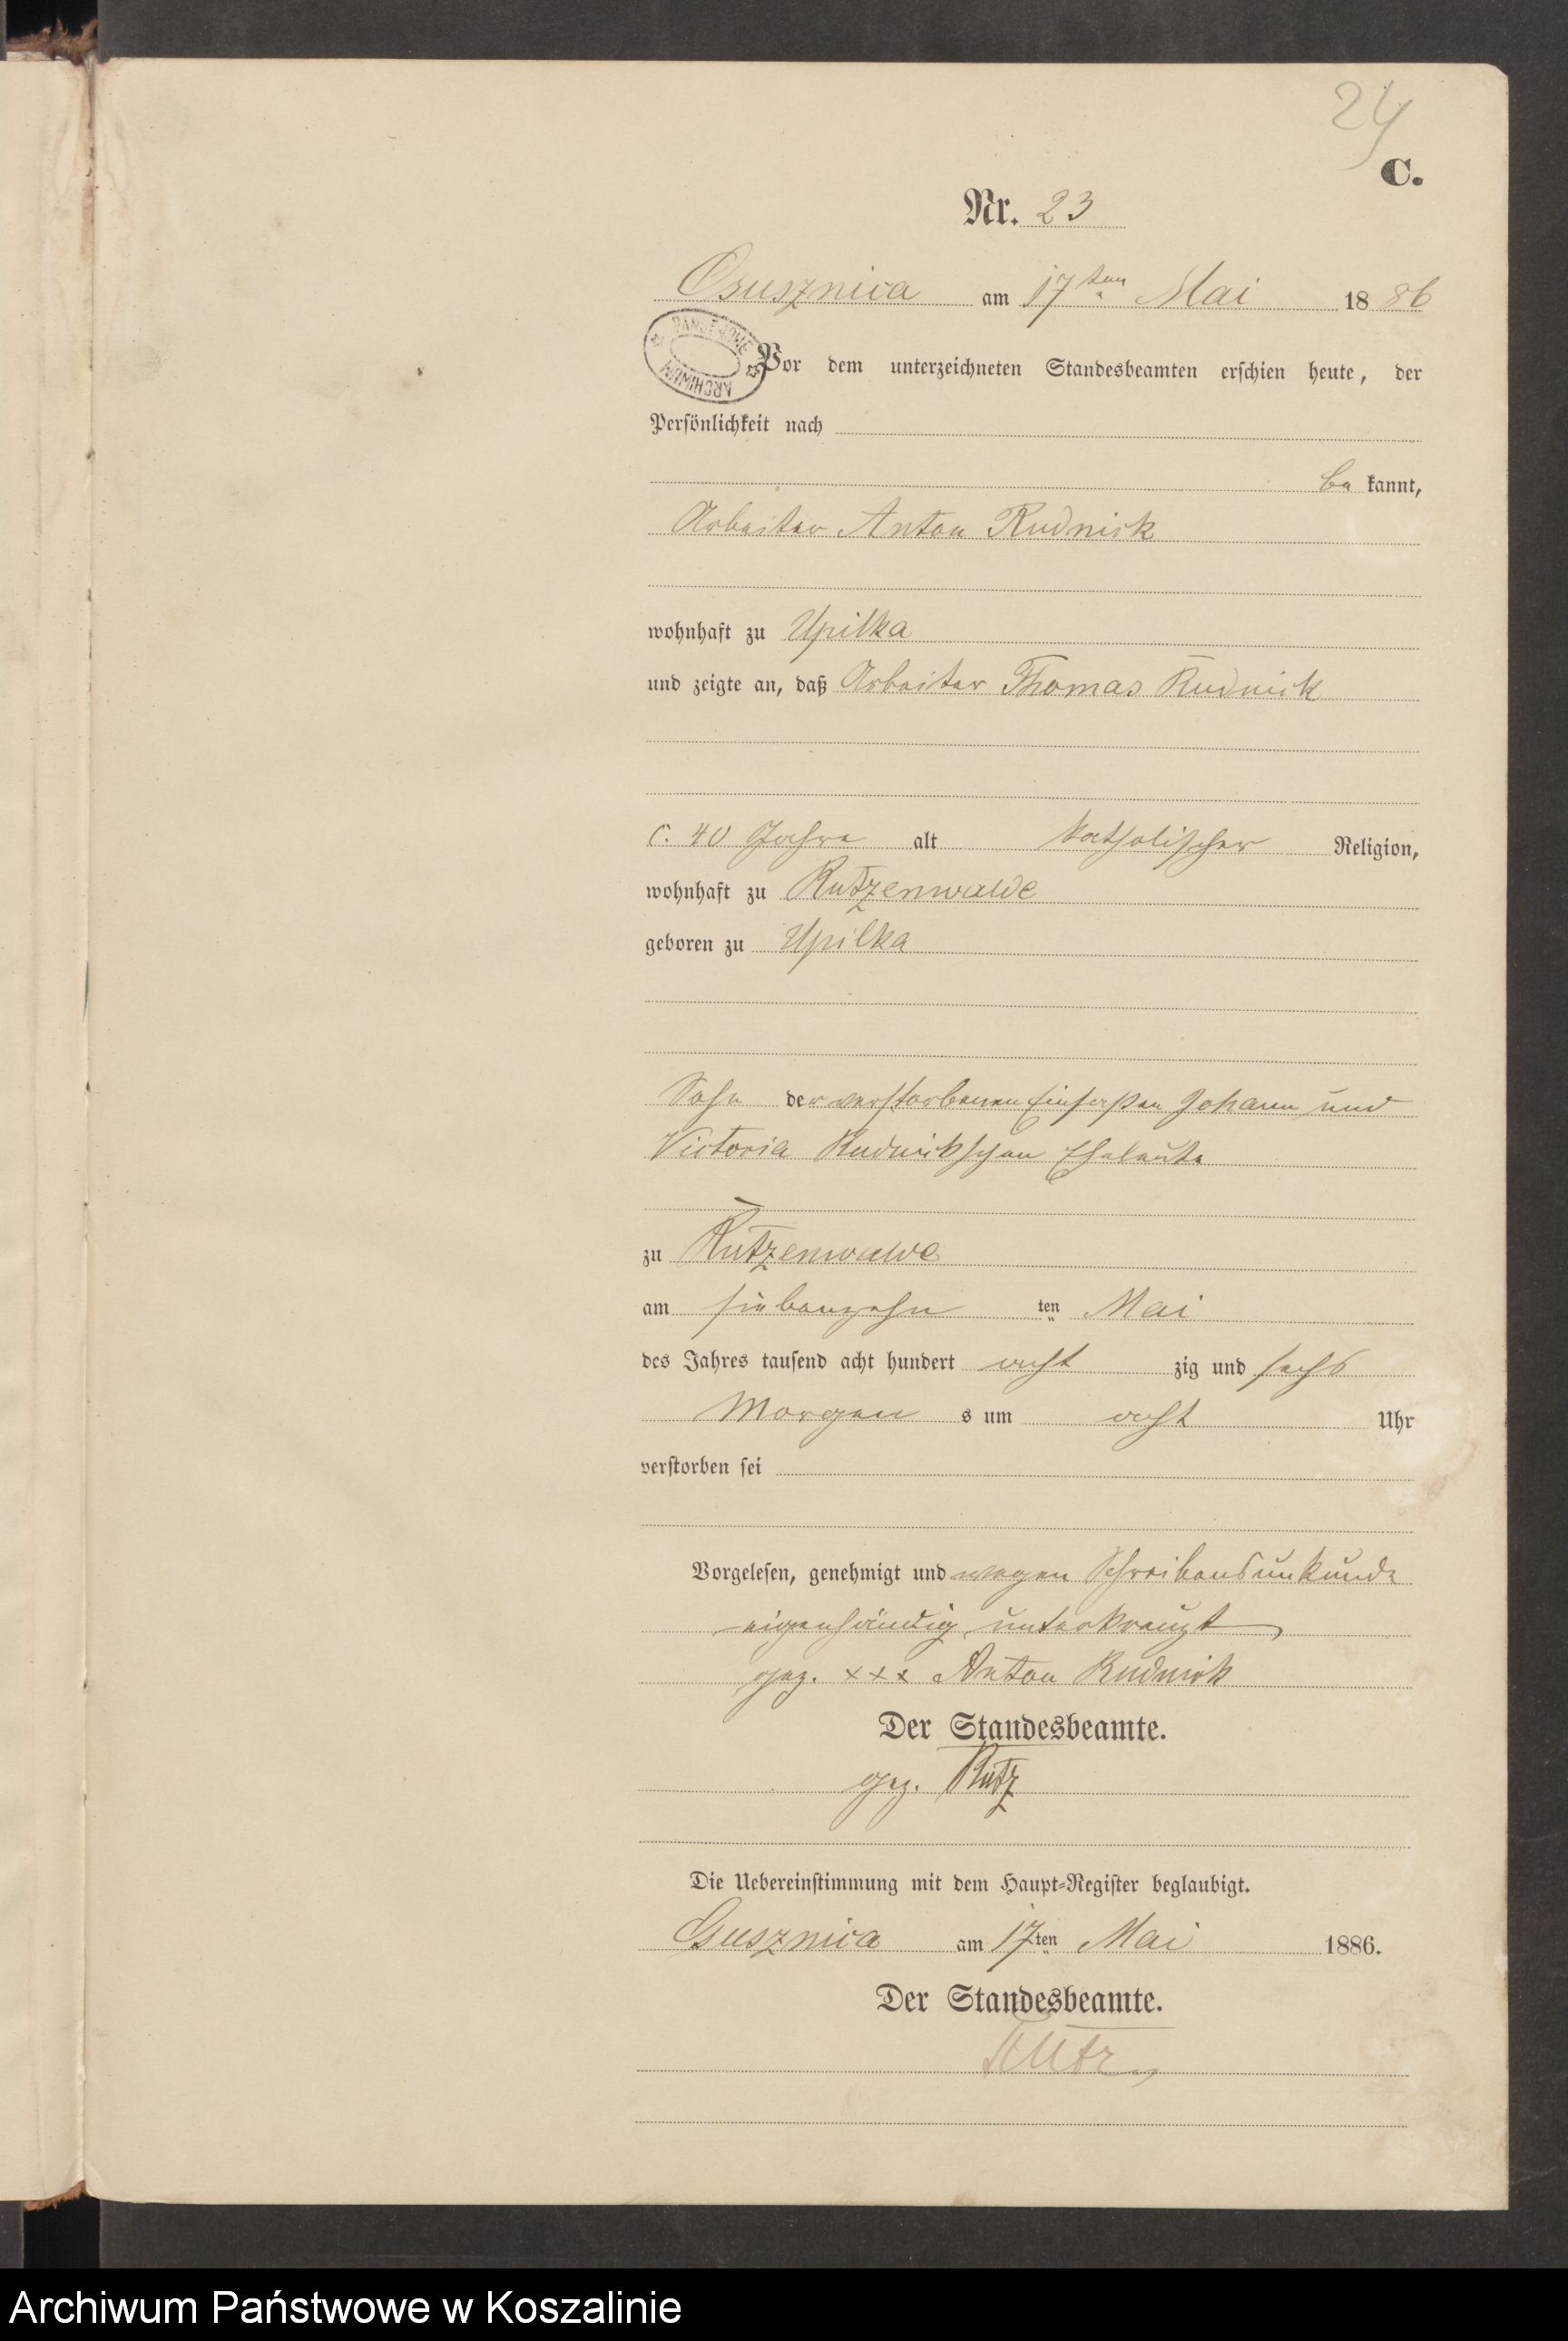 24
C.
Nr. 23
Osusznica am 17ten Mai 1886
Vor dem unterzeichneten Standesbeamten erschien heute, der
Persönlichkeit nach
be kannt,
Arbeiter Anton Rudnick
wohnhaft zu Upilka
und zeigte an, daß Arbeiter Thomas Rudnick
c. 40 Jahre alt katholischer Religion,
wohnhaft zu Rutzenwalde
geboren zu Upilka
Sohn der verstorbenen Einsaßen Johann und
Victoria Rudnickschen Eheleute
zu Rutzenwalde
am siebenzehn ten Mai
des Jahres tausend acht hundert acht zig und sechs
Morgen s um acht Uhr
verstorben sei
Vorgelesen, genehmigt und wegen Schreibensunkunde
eigenhändig unterkreuzt
gez. xxx Anton Rudnick
Der Standesbeamte.
gez. Rutz
Die Uebereinstimmung mit dem Haupt-Register beglaubigt.
Osusznica am 17ten Mai 1886.
Der Standesbeamte.
Rutz
Archiwum Państwowe w Koszalinie